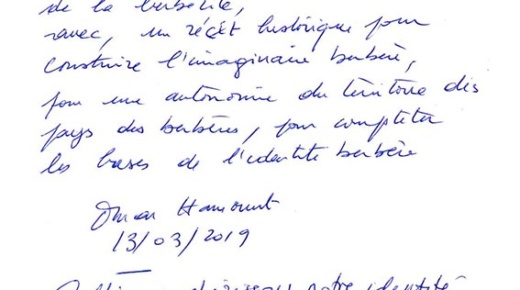 de la berbérité,
avec, un récit historique pour
construire l'imaginaire berbère,
pour une autonomie du téritoire des
pays des berbères, pour compléter
les bases de l'identité berbère
Omar Hamourit
13/03/2019
notre identité